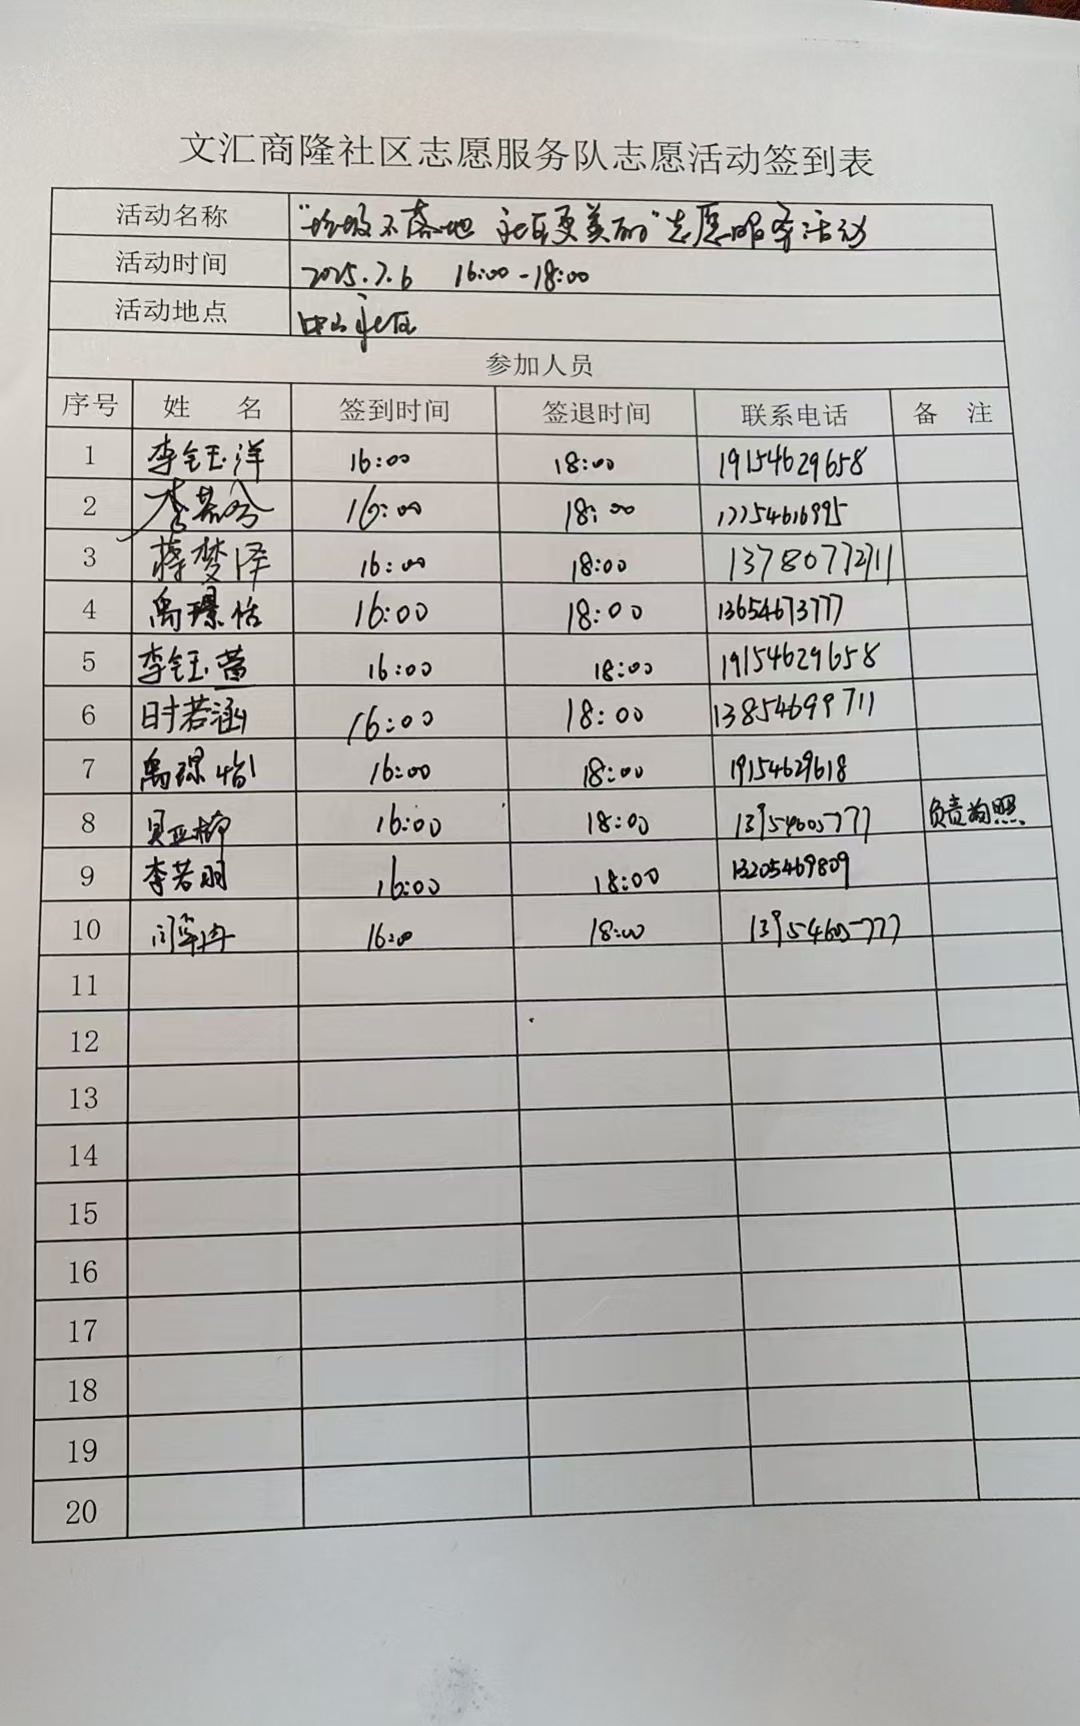 文汇商隆社区志愿服务队志愿活动签到表
活动名称 "垃圾不落地 社区更美丽"志愿服务活动
活动时间 2025.7.6 16:00-18:00
活动地点 中山社区
参加人员
序号 姓 名 签到时间 签退时间 联系电话 备 注
1 李钰洋 16:00 18:00 19154629658
2 李若汐 16:00 18:00 17754616995
3 蒋梦泽 16:00 18:00 13780772711
4 禹璟恬 16:00 18:00 13654673777
5 李钰萱 16:00 18:00 19154629658
6 时若涵 16:00 18:00 13854699711
7 禹琛怡 16:00 18:00 19154629618
8 16:00 18:00 13954605777 负责拍照
9 李若羽 16:00 18:00 13205469809
10 16:00 18:00 13954605777
11
12
13
14
15
16
17
18
19
20